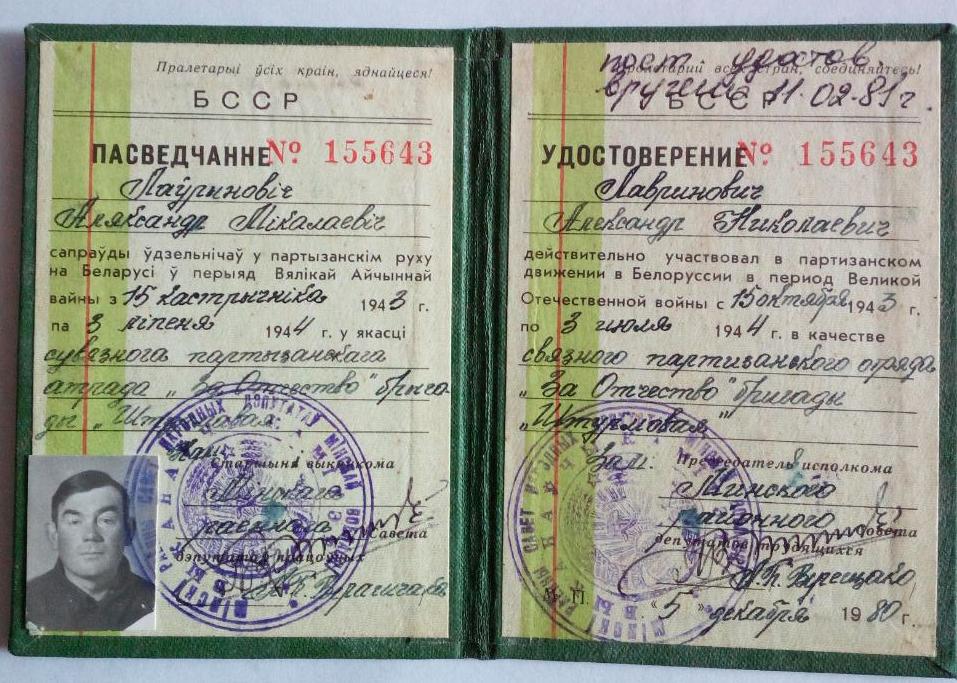 Пралетарыі ўсіх краін, яднайцеся!
БССР
ПАСВЕДЧАННЕ № 155643
Лаўрыновіч
Аляксандр Мікалаевіч
сапраўды ўдзельнічаў у партызанскім руху
на Беларусі ў перыяд Вялікай Айчыннай
вайны з 15 кастрычніка 1943 г.
па 3 ліпеня 1944 г. у якасці
сувязнога партызанскага
атрада „За Отчество" брыга-
ды „Штурмавая"
Нам. Старшыні выканкома
Мінскага
раённага Савета
дэпутатаў працоўных
пост. удостов.
вручено 11.02.81 г.
Пролетарии всех стран, соединяйтесь!
БССР
УДОСТОВЕРЕНИЕ № 155643
Лавринович
Александр Николаевич
действительно участвовал в партизанском
движении в Белоруссии в период Великой
Отечественной войны с 15 октября 1943 г.
по 3 июля 1944 г. в качестве
связного партизанского отряда
„За Отчество" бригады
„Штурмовая"
Зам. Председателя исполкома
Минского
районного Совета
депутатов трудящихся
М. П.
«5» декабря 1980 г.